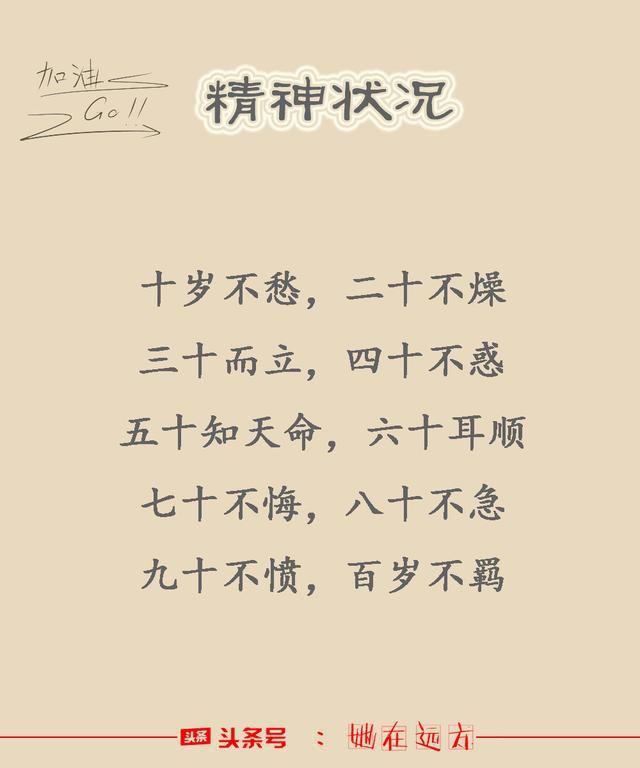 加油
Go!!
精神状况
十岁不愁，二十不燥
三十而立，四十不惑
五十知天命，六十耳顺
七十不悔，八十不急
九十不愤，百岁不羁
头条 头条号 ：她在远方